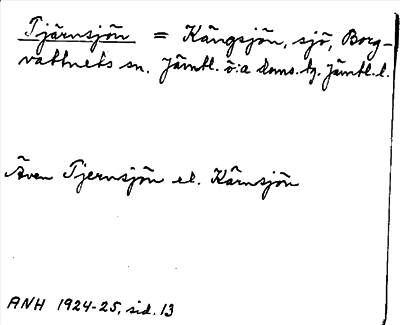 Tjärnsjön = Kängsjön, sjö, Borg-
vattnets sn. Jämtl. ö:a doms. tg. Jämtl. l.
Även Tjernsjön el. Kärnsjön
ANH 1924-25, sid. 13